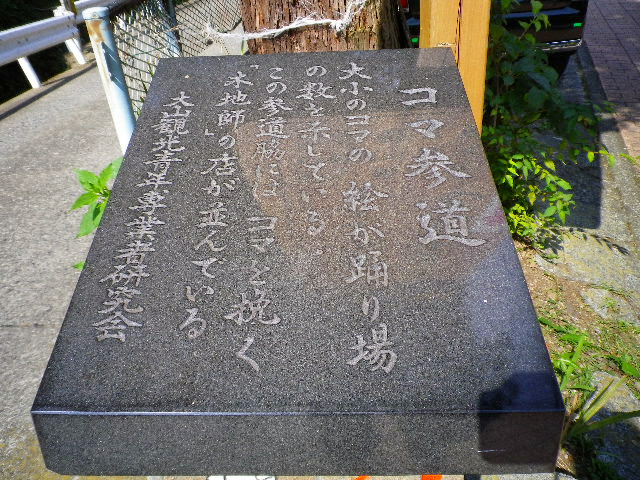 コマ参道
大小のコマの絵が踊り場
の数を示している。
この参道脇にはコマを挽く
「木地師」の店が並んでいる
大山観光青年専業者研究会